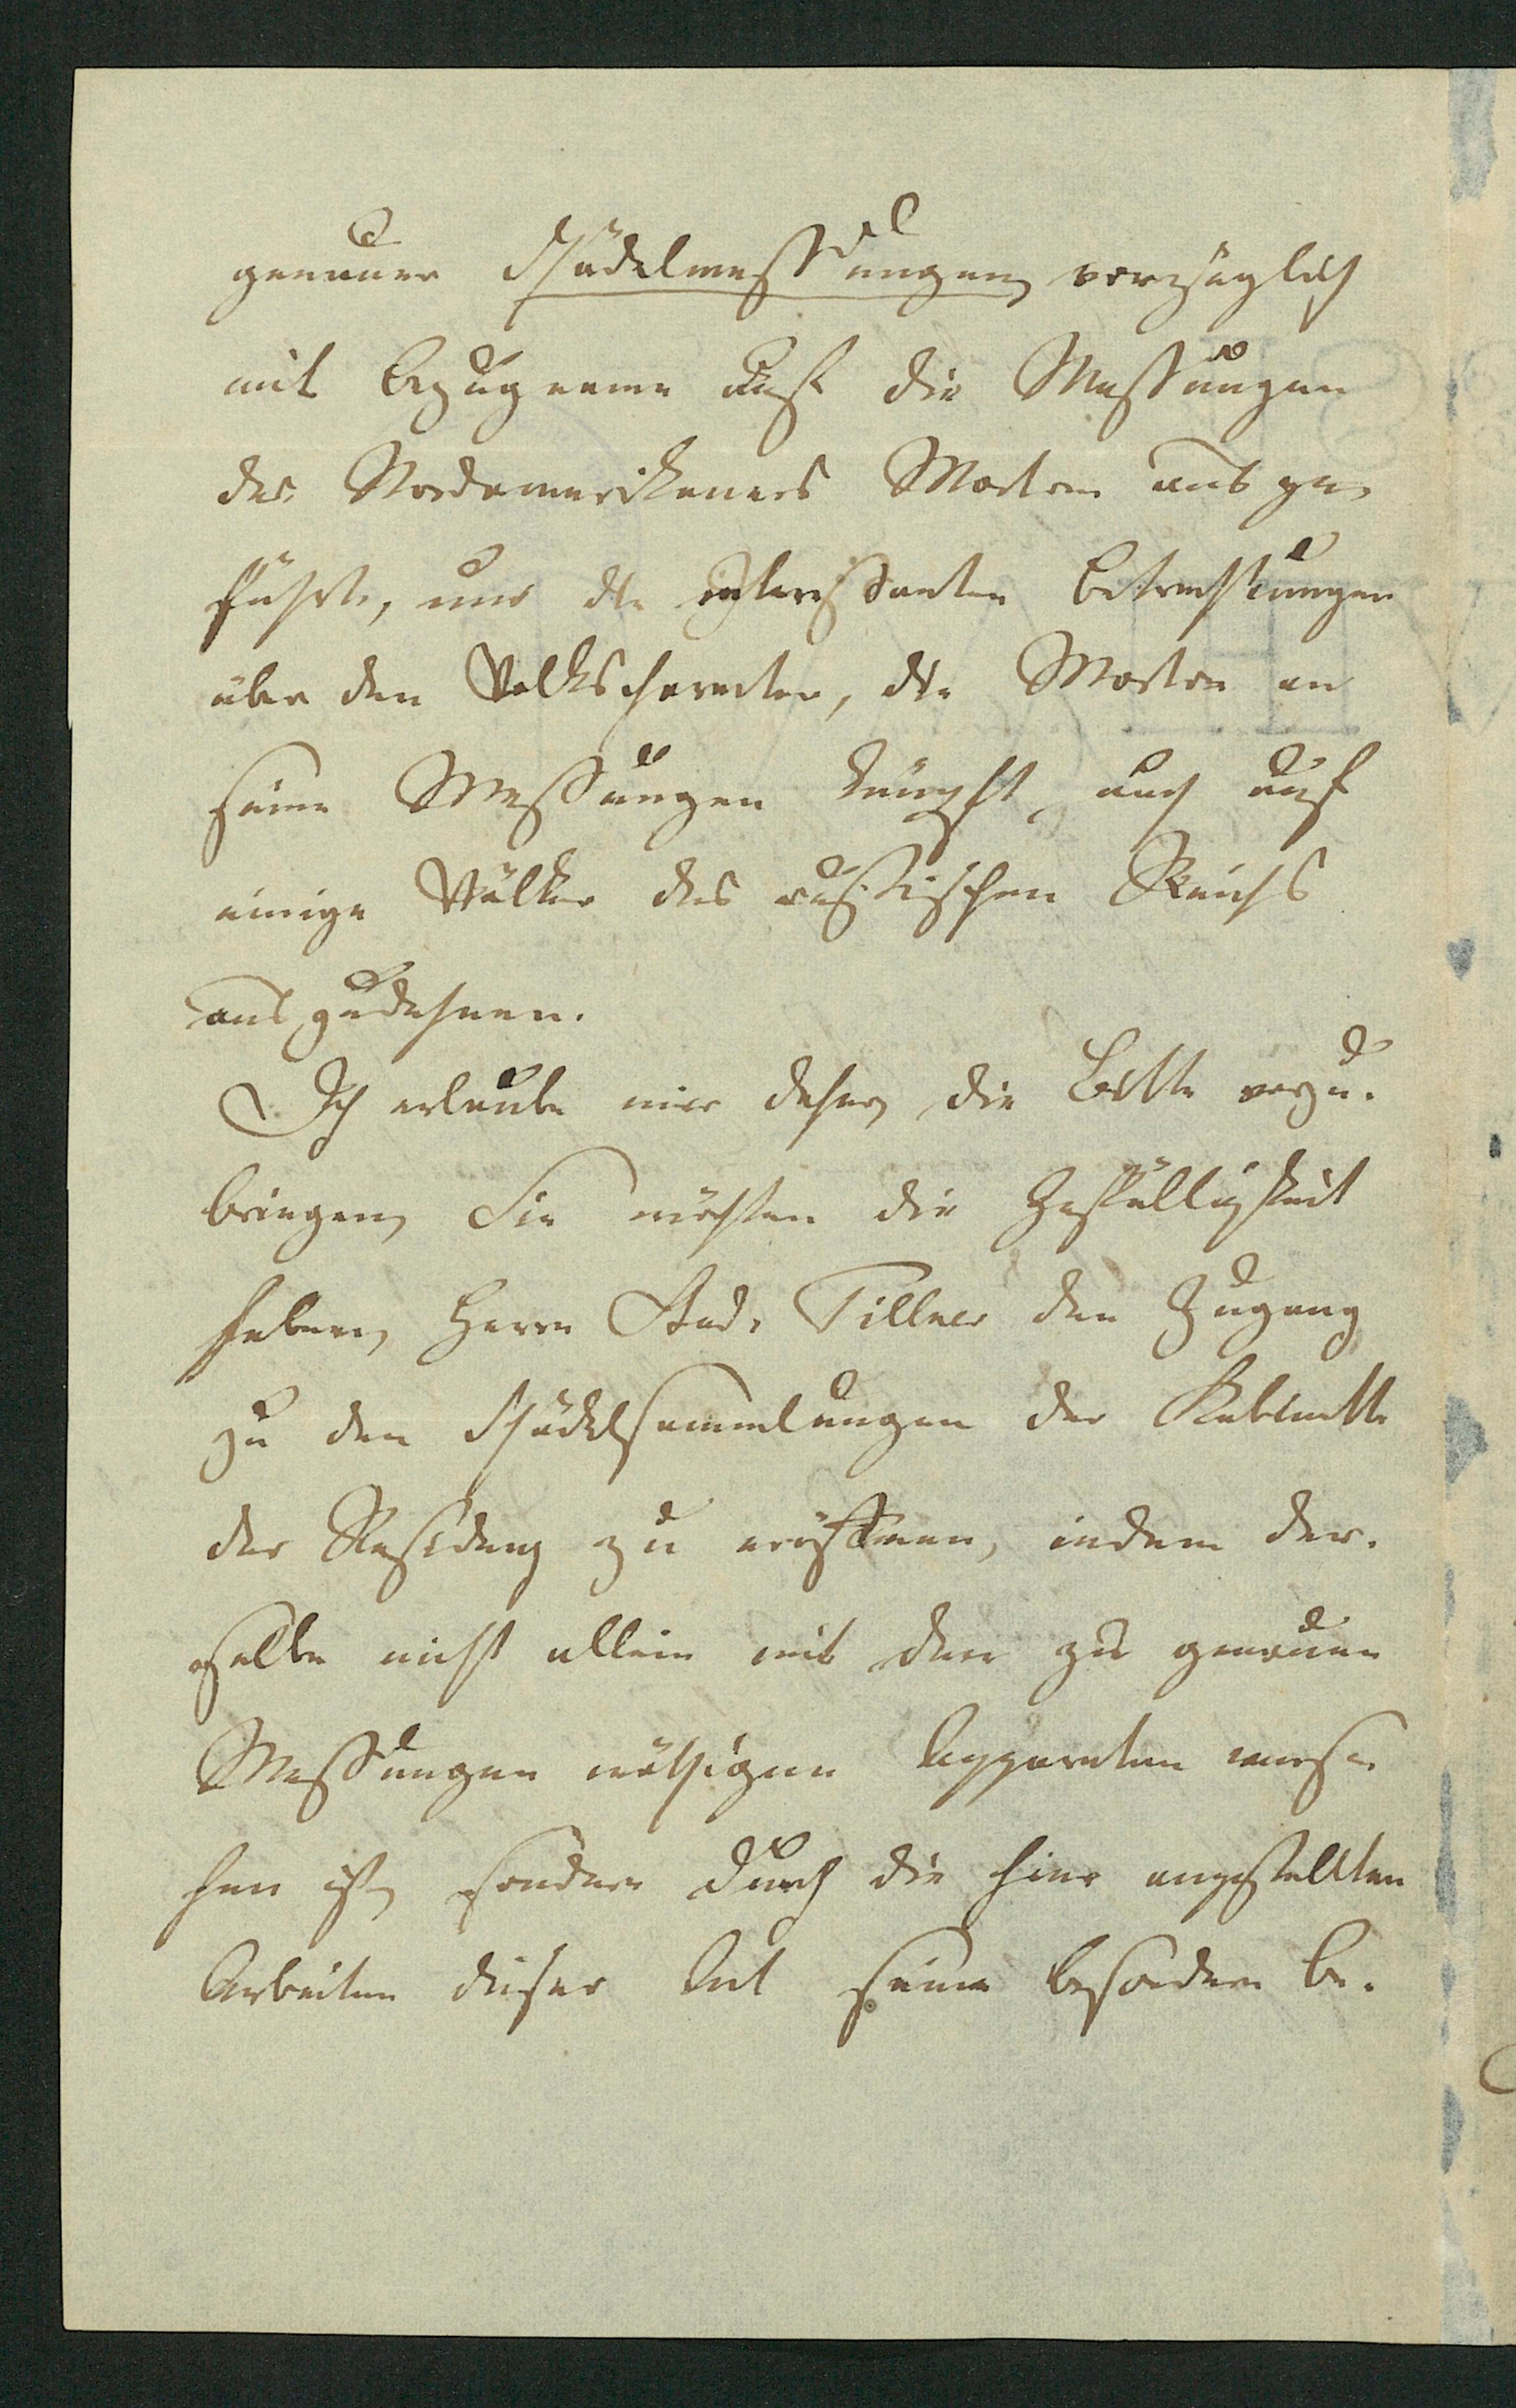 genauer Schädelmessungen, vorzüglich
mit Bezugname auf die Messungen
des Nordamerikaners Morton ausge-
führt, um die interessanten Betrachtungen
über den Volkscharacter, die Morton an
seine Messungen knüpft, auch auf
einige Völker des russischen Reichs
auszudehnen.
Ich erlaube mir daher, die Bitte vorzu-
bringen, Sie möchten die Gefälligkeit
haben, Herrn Stud. Tillner den Zugang
zu den Schädelsammlungen der Kabinette
der Residenz zu eröffnen, indem der-
selbe nicht allein mit den zu genauen
Messungen nöthigen Apparaten verse-
hen ist, sondern durch die hier angestellten
Arbeiten dieser Art seine besondere Be-